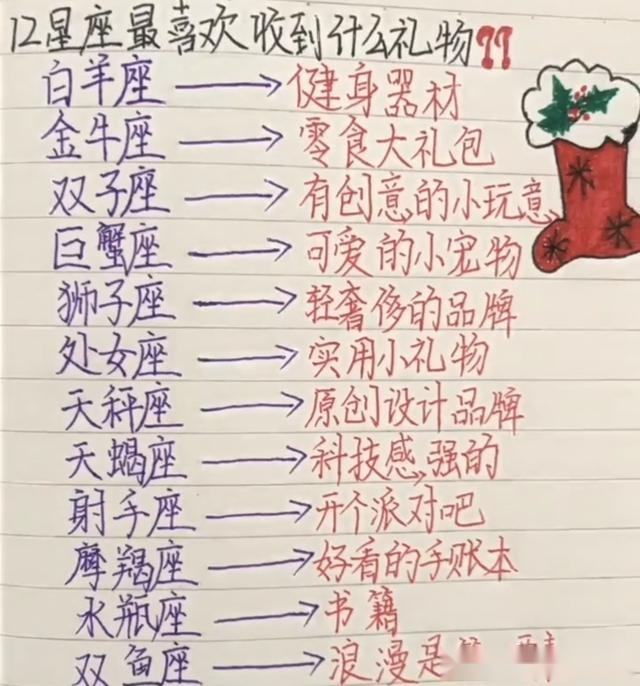 12星座最喜欢收到什么礼物??
白羊座 → 健身器材
金牛座 → 零食大礼包
双子座 → 有创意的小玩意
巨蟹座 → 可爱的小宠物
狮子座 → 轻奢侈的品牌
处女座 → 实用小礼物
天秤座 → 原创设计品牌
天蝎座 → 科技感强的
射手座 → 开个派对吧
摩羯座 → 好看的手账本
水瓶座 → 书籍
双鱼座 → 浪漫是